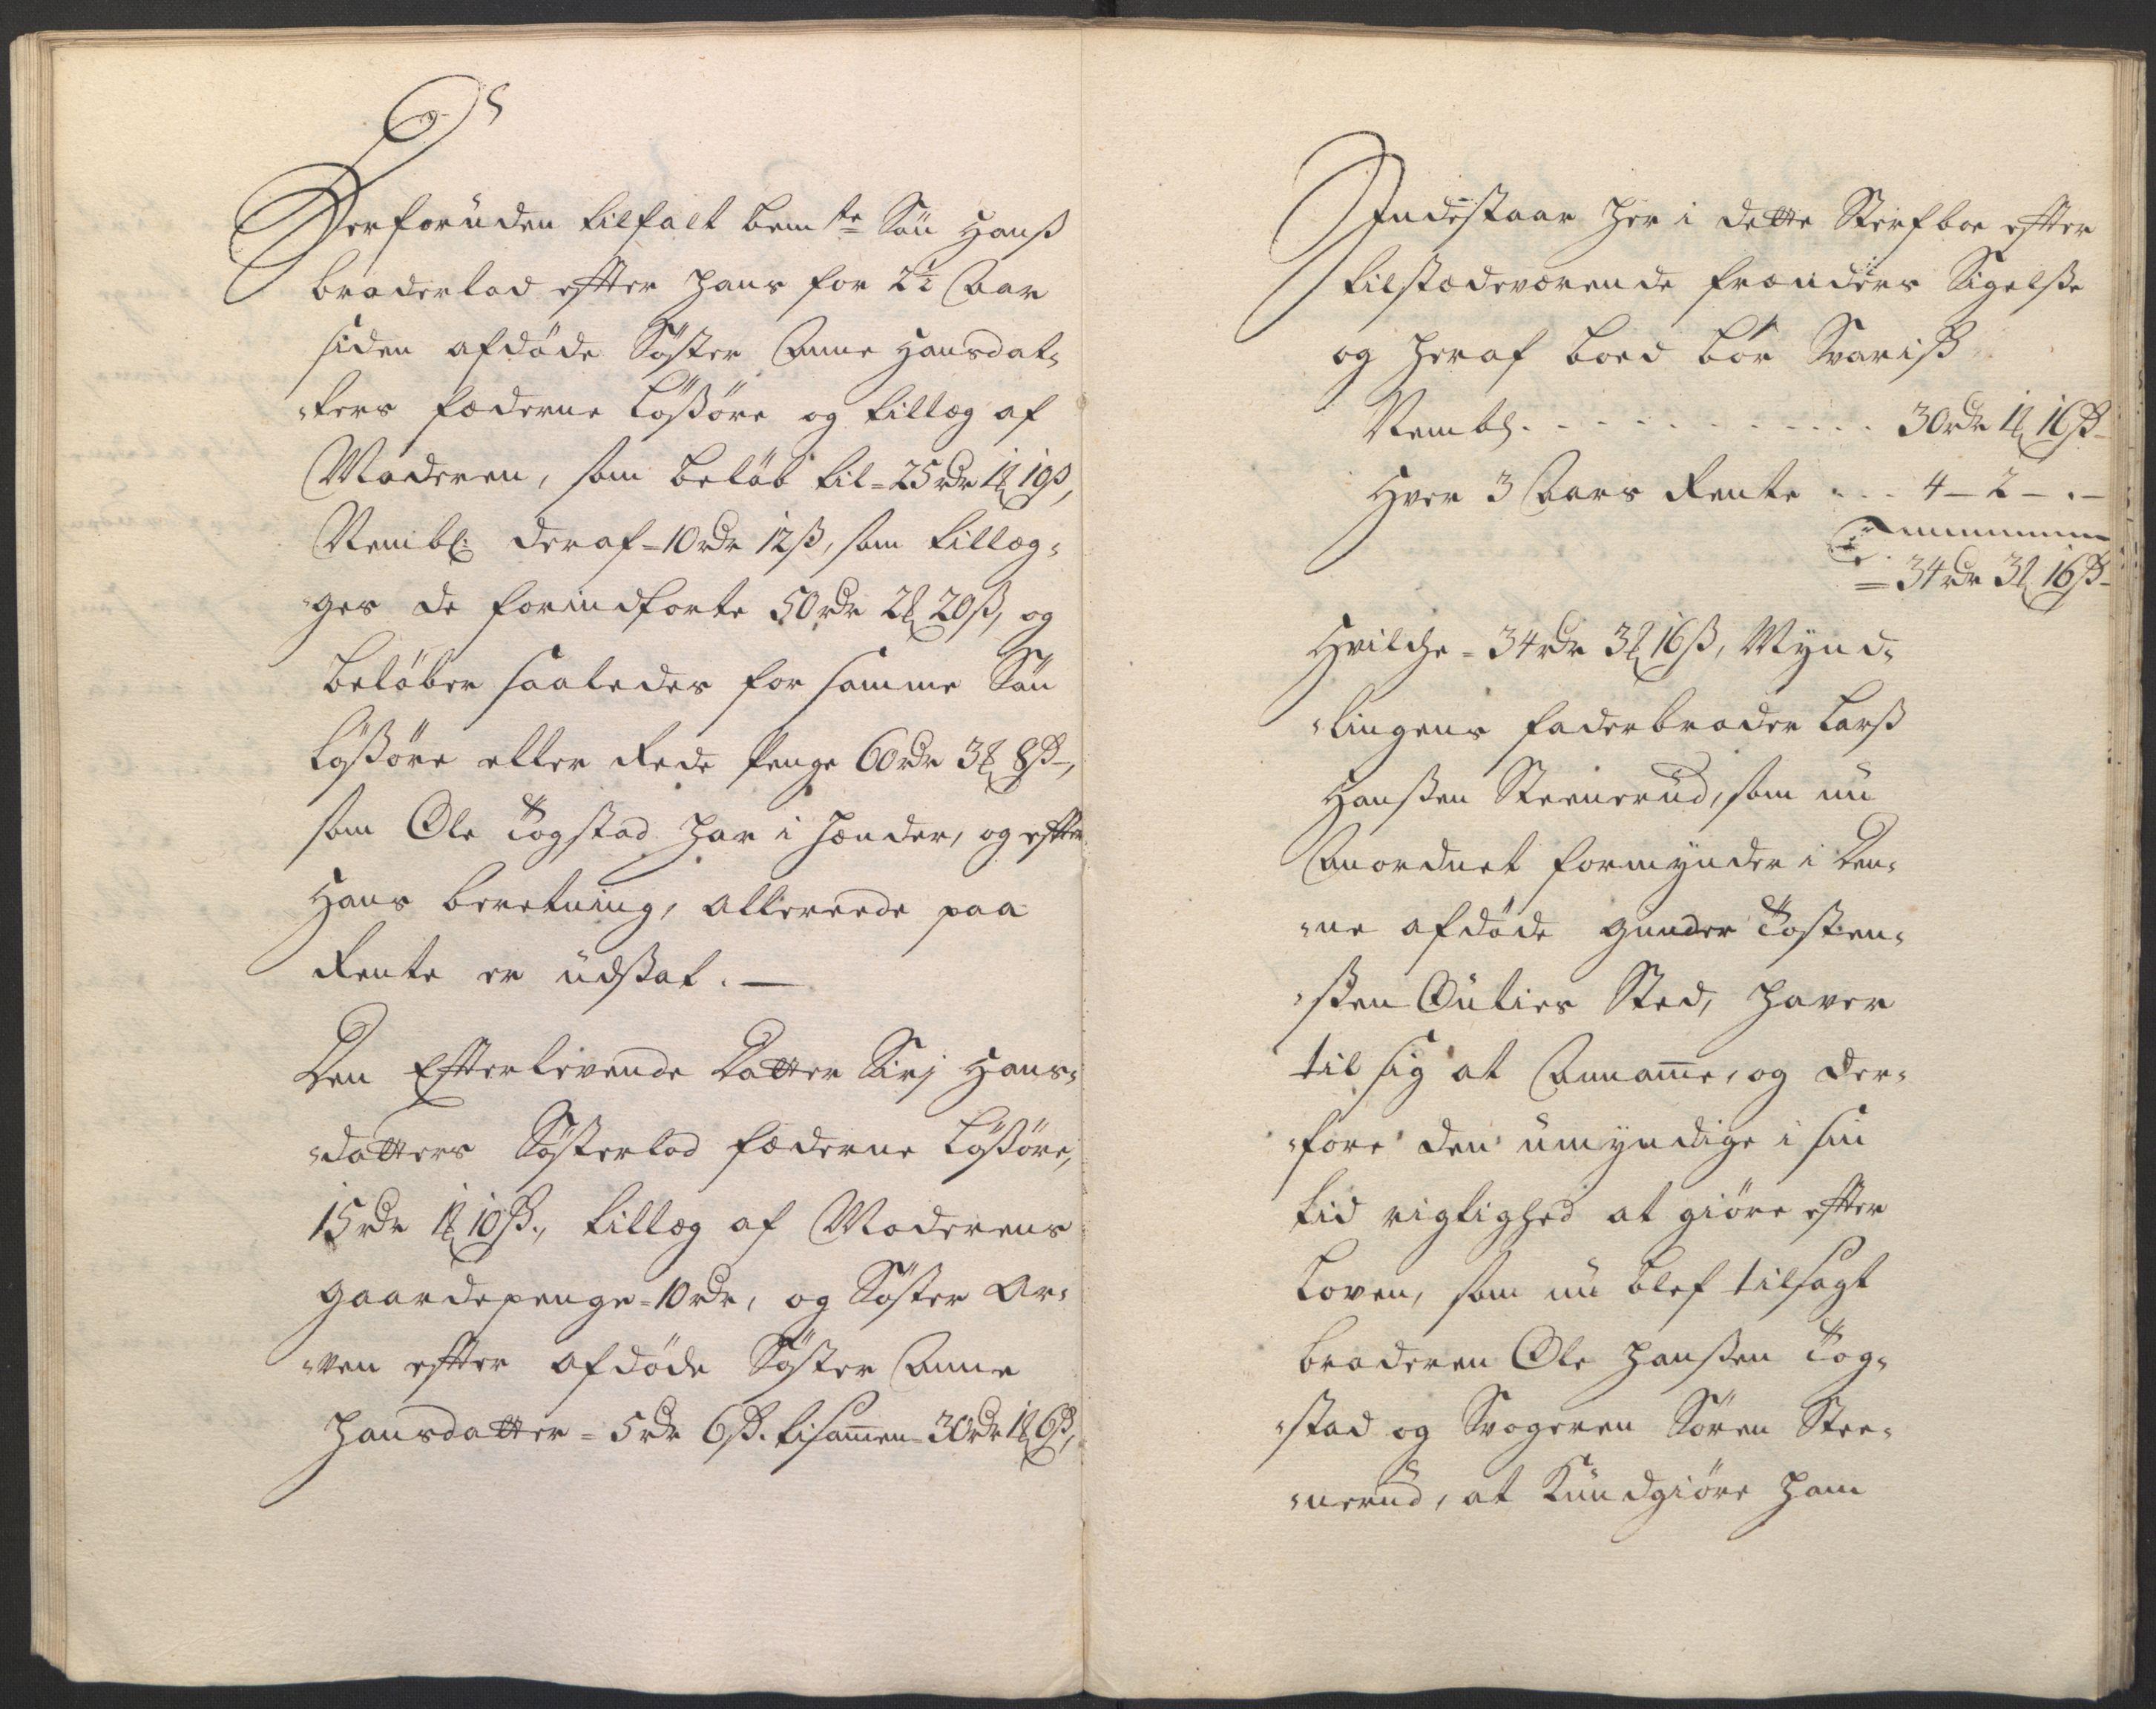 Derforuden tilfalt bem.te Søn Hanß
broderlod efter hans for 2½ Aar
siden afdøde Søster Anne Hansdat-
-ters fæderne Løßøre og tillæg af
Moderen, som beløb til = 25 rdr 1 ort 10 ß,
Nembl: deraf = 10 rdr 12 ß, som tillæg-
-ges de forindførte 50 rdr 2 ort 20 ß, og
beløber saaledes for samme Søn
Løßøre eller Rede Penge 60 rdr 3 ort 8 ß,
som Ole Togstad har i hænder, og efter
Hans beretning, allereede paa
Rente er udsat. —
Den Efterlevende Datter Siri Hans-
-datters Søsterlod fæderne Løßøre,
15 rdr 1 ort 10 ß., tillæg af Moderens
gaardepenge = 10 rdr, og Søster Ar-
-ven efter afdøde Søster Anne
Hansdatter = 5 rdr 6 ß. tilsam̄en = 30 rdr 1 ort 16 ß,
Indestaar her i dette Sterfboe efter
tilstædeværende frænders Sigelße
og heraf boed bør Svariß
Nembl. . . . . . . . . . . . . 30 rdr 1 ort 16 ß
Hver 3 Aars Rente . . . 4 – 2 – . –
= 34 rdr 3 ort 16 ß
Hvilche = 34 rdr 3 ort 16 ß, Mynd-
-lingens faderbroder Larß
Hanßen Steenerud, som nu
Anordnet formynder i Den-
-ne afdøde Gunder Tosten-
-sten Sted, haver
til sig at Annam̄e, og der-
-fore den umyndige i sin
tid rigtighed at giøre efter
Loven, som nu blef tilsagt
broderen Ole Hanßen Tog-
-stad og Svogeren Søren Stee-
-nerud, at Kundgiøre ham